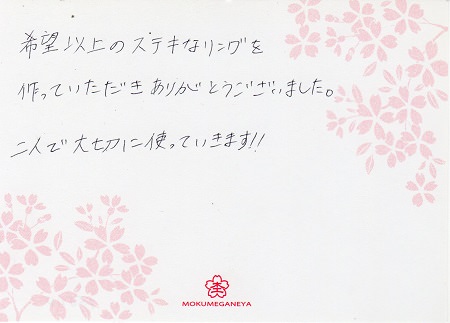 希望以上のステキなリングを
作っていただきありがとうございました。
二人で大切に使っていきます!!
MOKUMEGANEYA